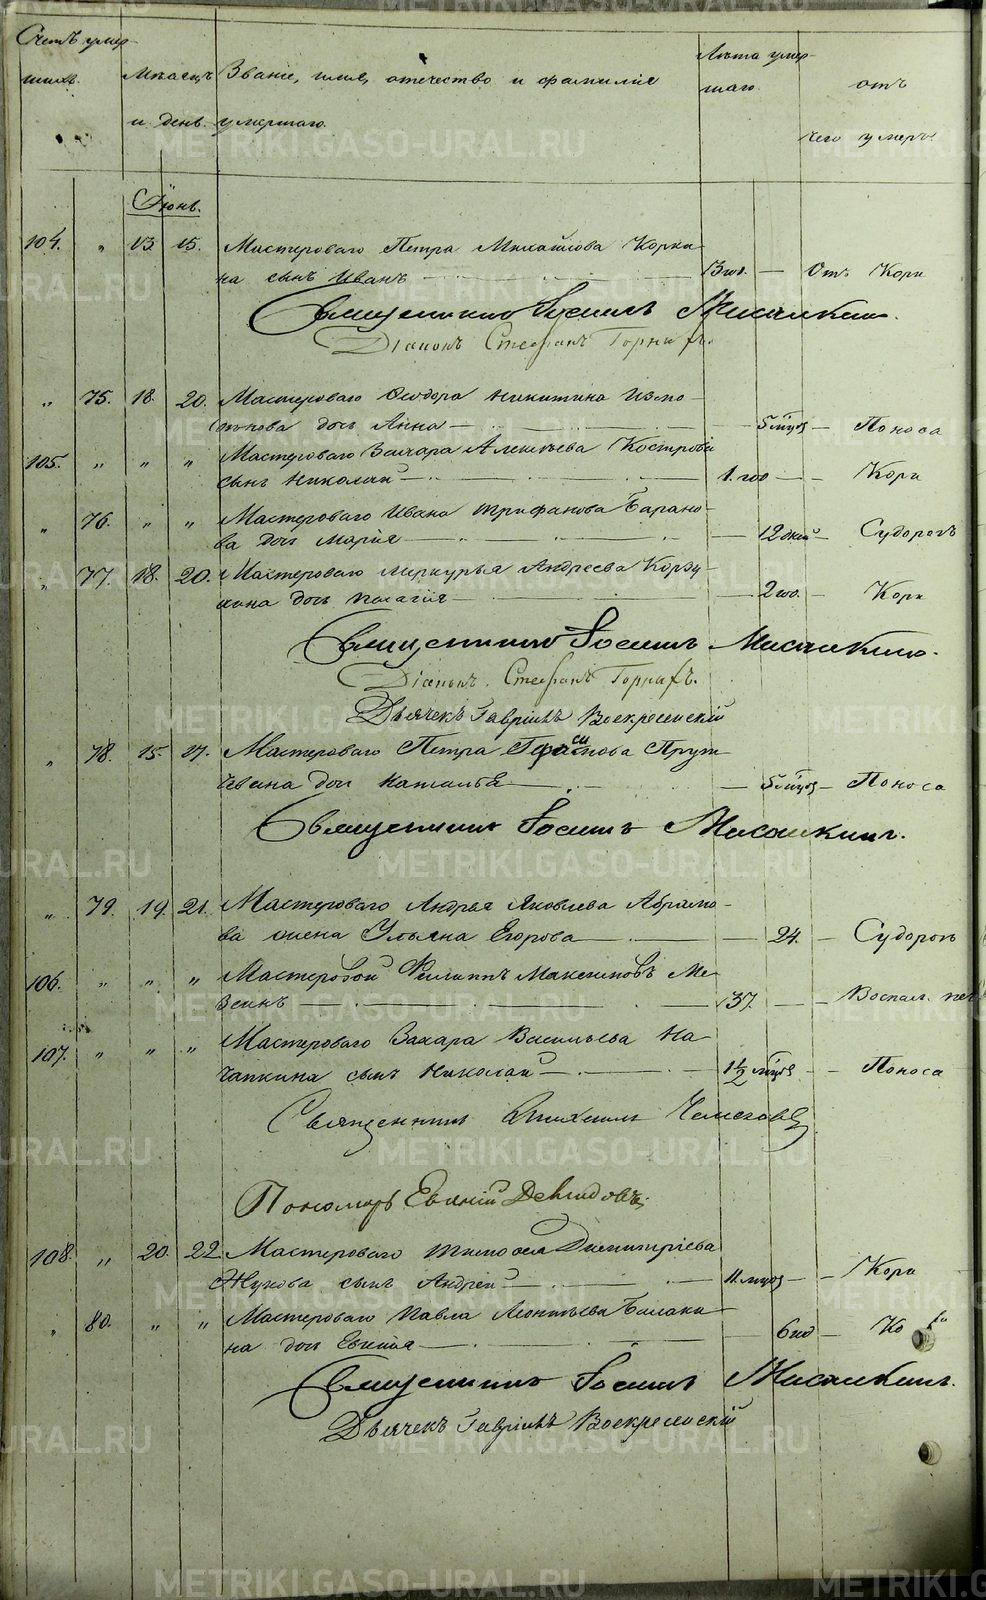 Счетъ умер-
шихъ.
Мѣсяцъ
и день.
Званіе, имя, отечество и фамилія
умершаго.
Лѣта умер-
шаго.
отъ
чего умеръ.
Іюнь.
104. „ 13. 15. Мастероваго Петра Михайлова Корки-
на сынъ Иванъ 3 год. Отъ Кори
Священникъ Іосифъ
Діаконъ Стефанъ Горныхъ.
„ 75. 18. 20. Мастероваго Ѳеодора Никитина
дочь Анна 5 мѣцов Поноса
105. „ „ „ Мастероваго Захара Алексѣева Кострова
сынъ Николай 1. год Кори
„ 76. „ „ Мастероваго Ивана Трифанова Барано-
ва дочь Марія 12 дней Судорогъ
„ 77. 18. 20. Мастероваго Меркурья Андреева
дочь Пелагія 2 го. Кори
Священникъ Іосифъ
Діаконъ Стефанъ Горныхъ.
Дьячекъ Гавріилъ Воскресенскій
„ 78. 15. 17. Мастероваго Петра
дочь Наталья 5 мѣцов Поноса
Священникъ Іосифъ
„ 79. 19. 21. Мастероваго Андрея Яковлева Абрамо-
ва жена Ульяна Егорова 24. Судорогъ
106. „ „ „ Мастеровой Филиппъ Максимовъ Ме-
зенъ 37. Воспал.
107. „ „ „ Мастероваго Захара Васильева На-
чапкина сынъ Николай 1½ мѣцов Поноса
Священникъ
Пономарь Евгеній Демидовъ.
108. „ 20. 22. Мастероваго Тимофея Димитріева
Жукова сынъ Андрей 11. мѣцов Кори
„ 80. „ „ Мастероваго Павла Леонтьева Балаки-
на дочь Евгенія 6 нед Ко
Священникъ Іосифъ
Дьячекъ Гавріилъ Воскресенскій
METRIKI.GASO-URAL.RU